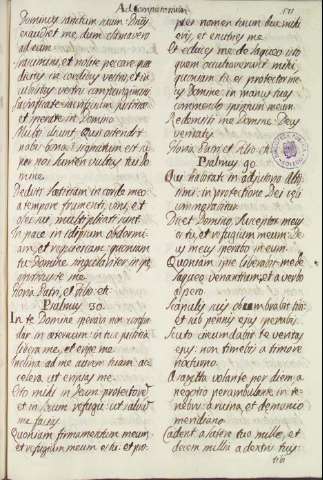 Ad Completorium
Dominus sanctum suum Dñs
exaudiet me, dum clamavero
ad eum
Irascimini, et nolite peccare que
dicitis in cordibus vestris, et in
cubilibus vestris compungimini
Sacrificate sacrificium justitiæ
et sperate in Domino
Multi dicunt Quis ostendit
nobis bona? signatum est su
per nos lumen vultus tui Do
mine.
Dedisti lætitiam in corde meo
a tempore frumenti, vini, et
olei sui, multiplicati sunt.
In pace in idipsum obdormi
am, et requiescam: quoniam
tu Domine singulariter in spe
constituisti me
Gloria Patri, et filio. etc.
Psalmus 30.
In te Domine speravi non confun
dar in æternum: in tua justitia
libera me, et eripe me.
Inclina ad me aurem tuam: ac
celera ut eruas me.
Esto mihi in Deum protectorē
et in domum refugii: ut salvū
me facias
Quoniam firmamentum meum,
et refugium meum es tu: et pro-
pter nomen tuum deduc mihi
eris, et enutries me.
Et educes me de laqueo isto
quem occultaverunt mihi,
quoniam tu es protector me
us Domine. in manus tuas
commendo spiritum meum:
Redemisti me Domine Deus
veritatis
Gloria Patri, et filio. etc.
Psalmus 90.
Qui habitat in adjutorio Altis
simi: in protectione Dei celi
commorabitur
Dicet Domino, Susceptor meus
es tu, et refugium meum: De
us meus sperabo in eum.
Quoniam ipse liberavit me de
laqueo venantium, et a verbo
aspero
Scapulis suis obumbrabit tibi:
et sub pennis ejus sperabis
Scuto circumdabit te veritas
ejus: non timebis a timore
nocturno.
A sagitta volante per diem, a
negotio perambulante in te-
nebris: a ruina, et demonio
meridiano
Cadent a latere tuo mille, et
decem millia a dextris tuis: